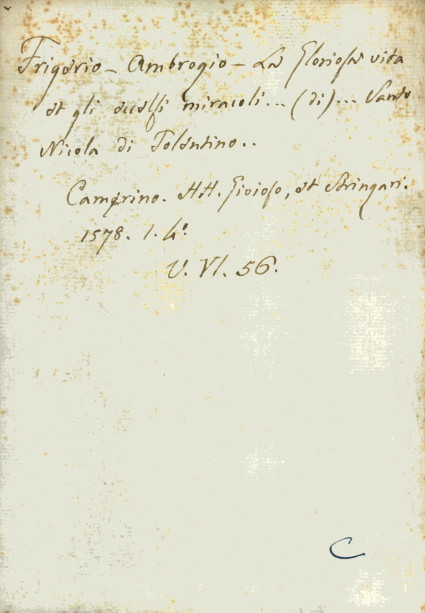 Frigerio - Ambrogio - La Gloriosa vita
et gli eccelsi miracoli... (di)... Santo
Nicola di Tolentino..
Camerino. HH. Gioioso, et Stringari.
1578. 1. 4º.
V. VI. 56.
C